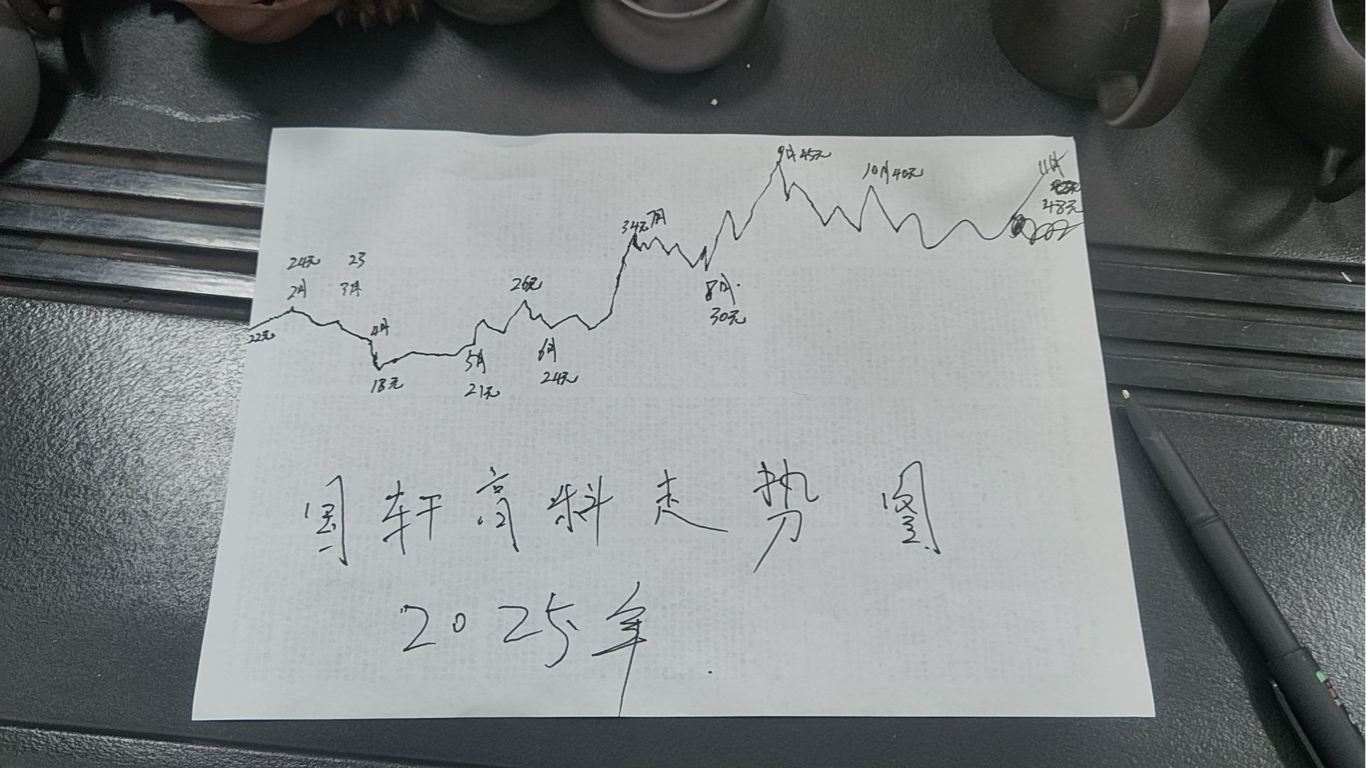 22元
24元
2月
23
3月
4月
18元
5月
21元
26元
6月
24元
34元 7月
8月.
30元
9月45元
10月40元
11月
48元
国轩高科走势图
2025年.